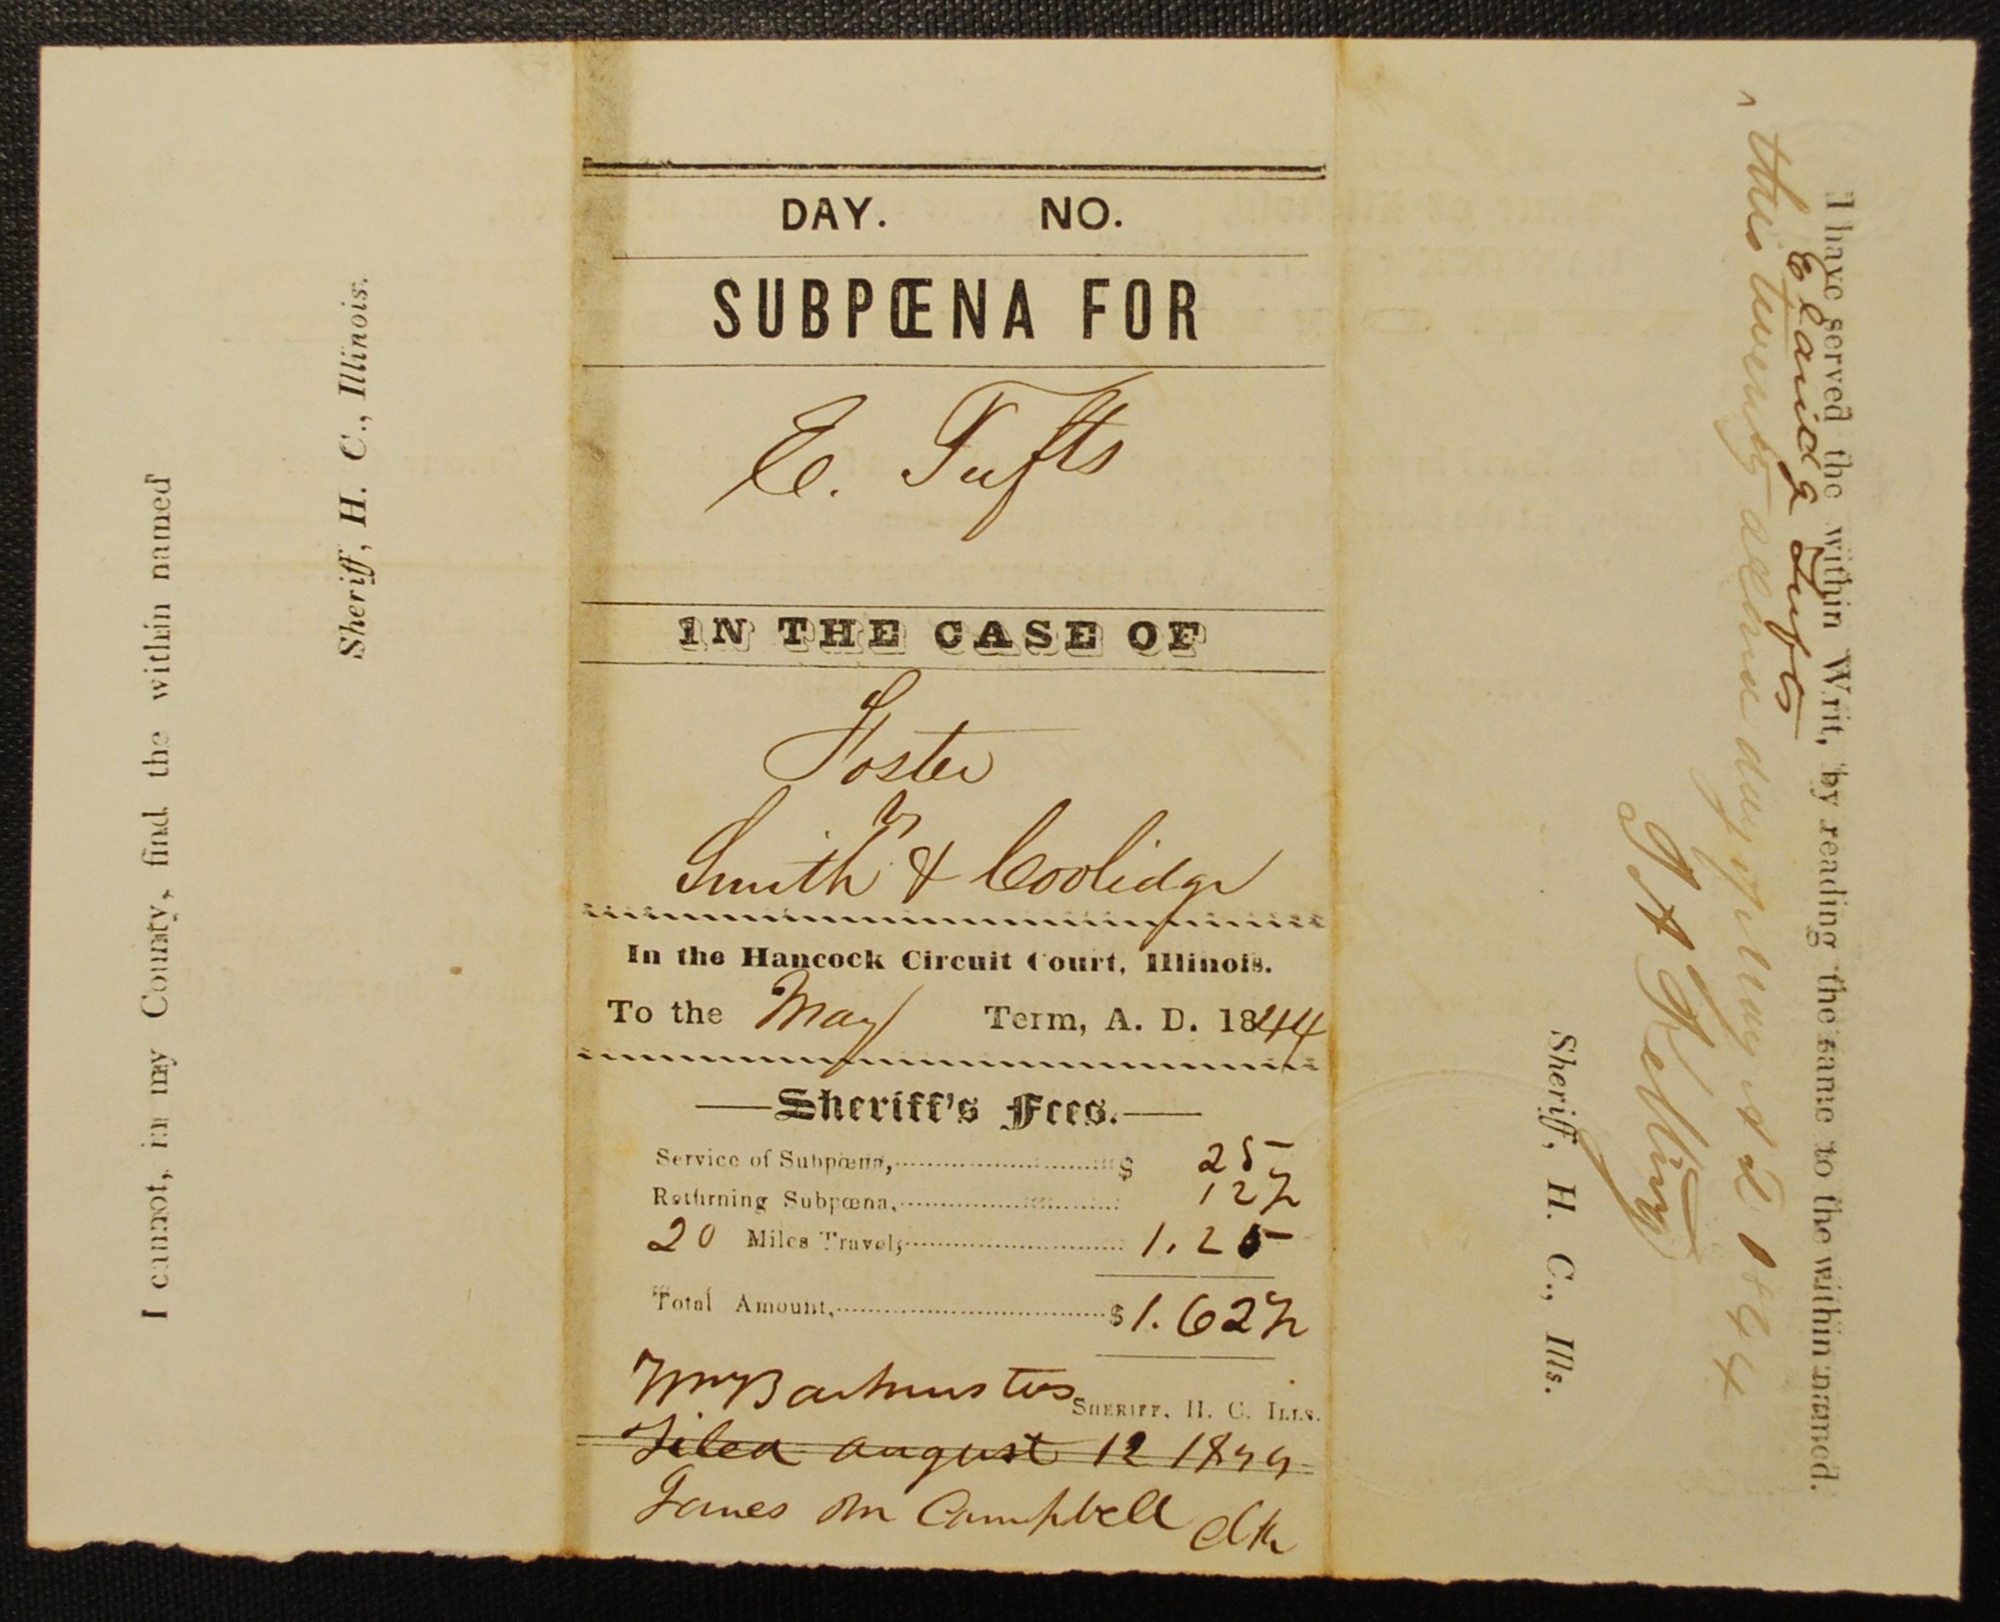 I cannot, in my County, find the within named
Sheriff, H. C., Illinois.
DAY. NO.
SUBPŒNA FOR
E. Tufts
IN THE CASE OF
Foster
vs
Smith & Coolidge
In the Hancock Circuit Court, Illinois.
To the May Term, A. D. 1844
Sheriff's Fees.
Service of Subpœna, $ 25
Returning Subpœna, 12½
20 Miles Travel, 1.25
Total Amount, $ 1.62½
Wm Backenstos SHERIFF, H. C. ILLS.
Filed august 12 1844
James M Campbell Clk
I have served the within Writ, by reading the same to the within named.
Tufts
this twenty second day of May A D 1844
T A Kelting
Sheriff, H. C., Ills.